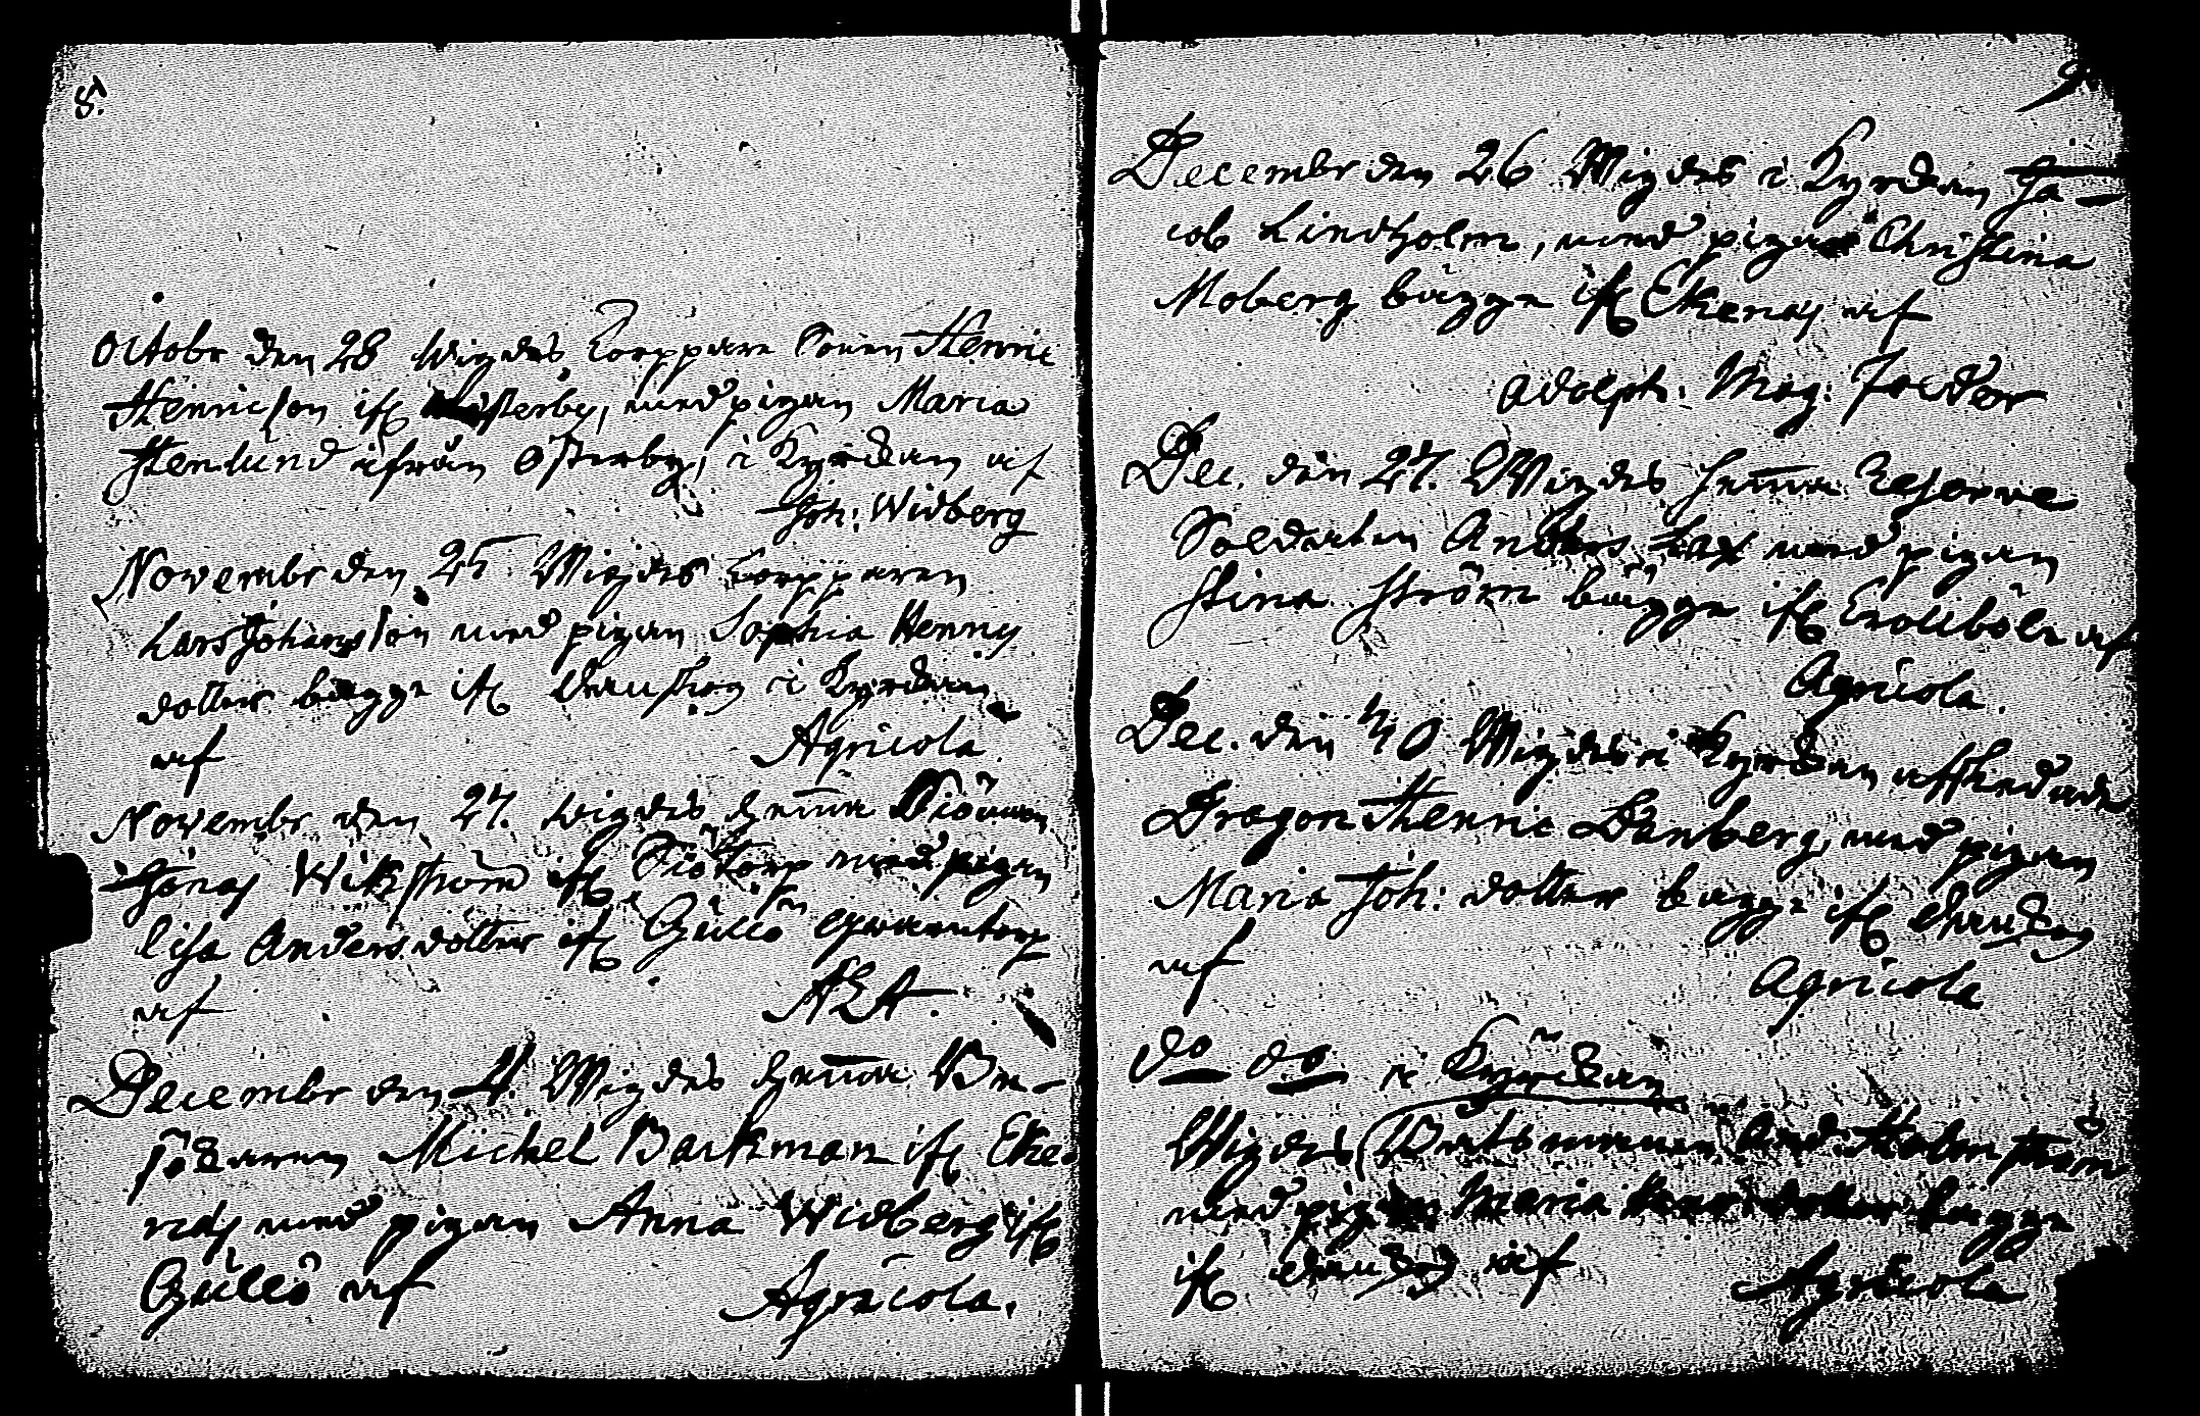 8.
Octobr den 28 Wigdes Torppare Sonen Henric
Henricson ifr Österby, med pigan Maria
Stenlund ifrån Österby, i Kyrckan af
Joh: Widberg
Novembr den 25 Wigdes Torpparen
Lars Johansson med pigan Sophia Henrics
dotter bägge ifr i Kyrckan
af Agricola.
Novembr den 27. Wigdes hemma Siöman
Jonas Wikström ifr Siötorp med pigan
Lisa Andersdotter ifr Gullö Qvarntorp
af AEA.
Decembr den 4. Wigdes hemma Be-
sökaren Michel Barkman ifr Eke-
näs med pigan Anna Widberg ifr
Gullö af Agricola.
9.
Decembr den 26 Wigdes i Kyrckan Ja-
cob Lindholm, med pigan Christina
Moberg bägge ifr Ekenäs af
Adolph: Mag:
Dec. den 27. Wigdes hemma Reserve
Soldaten Anders Lax med pigan
Stina Ström bägge ifr af
Agricola.
Dec. den 30 Wigdes i Kyrckan affskedade
Dragon Henric Danberg, med pigan
Maria Joh: dotter bägge ifr
af Agricola
do do i Kyrckan
Wigdes Båtsmannen And: Holmström
med pigan Maria dotter bägge
ifr af Agricola